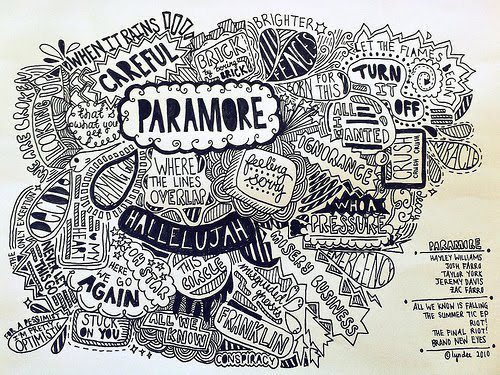 WHEN IT RAINS
CAREFUL
BRICK
by boring
BRICK
BRIGHTER
FENCES
LET THE FLAMES
BEGIN
TURN
IT
OFF
BORN FOR
THIS
PARAMORE
that's
what you
get
ALL I
WANTED
IGNORANCE
CRUSH
CRUSH
CRUSH
MIRACLE
WHERE
THE LINES
OVERLAP
feeling
sorry
DECODE
THE ONLY EXCEPTION
MY HEART
WHOA
PRESSURE
HALLELUJAH
MISERY BUSINESS
EMERGENCY
HERE
WE GO
AGAIN
THIS
CIRCLE
FOR A PESSIMIST
I'M PRETTY
OPTIMISTIC
STUCK
ON YOU
ALL WE
KNOW
FRANKLIN
CONSPIRACY
PARAMORE
HAYLEY WILLIAMS
JOSH FARRO
TAYLOR YORK
JEREMY DAVIS
ZAC FARRO
ALL WE KNOW IS FALLING
THE SUMMER TIC EP
RIOT!
THE FINAL RIOT!
BRAND NEW EYES
© lyndee 2010